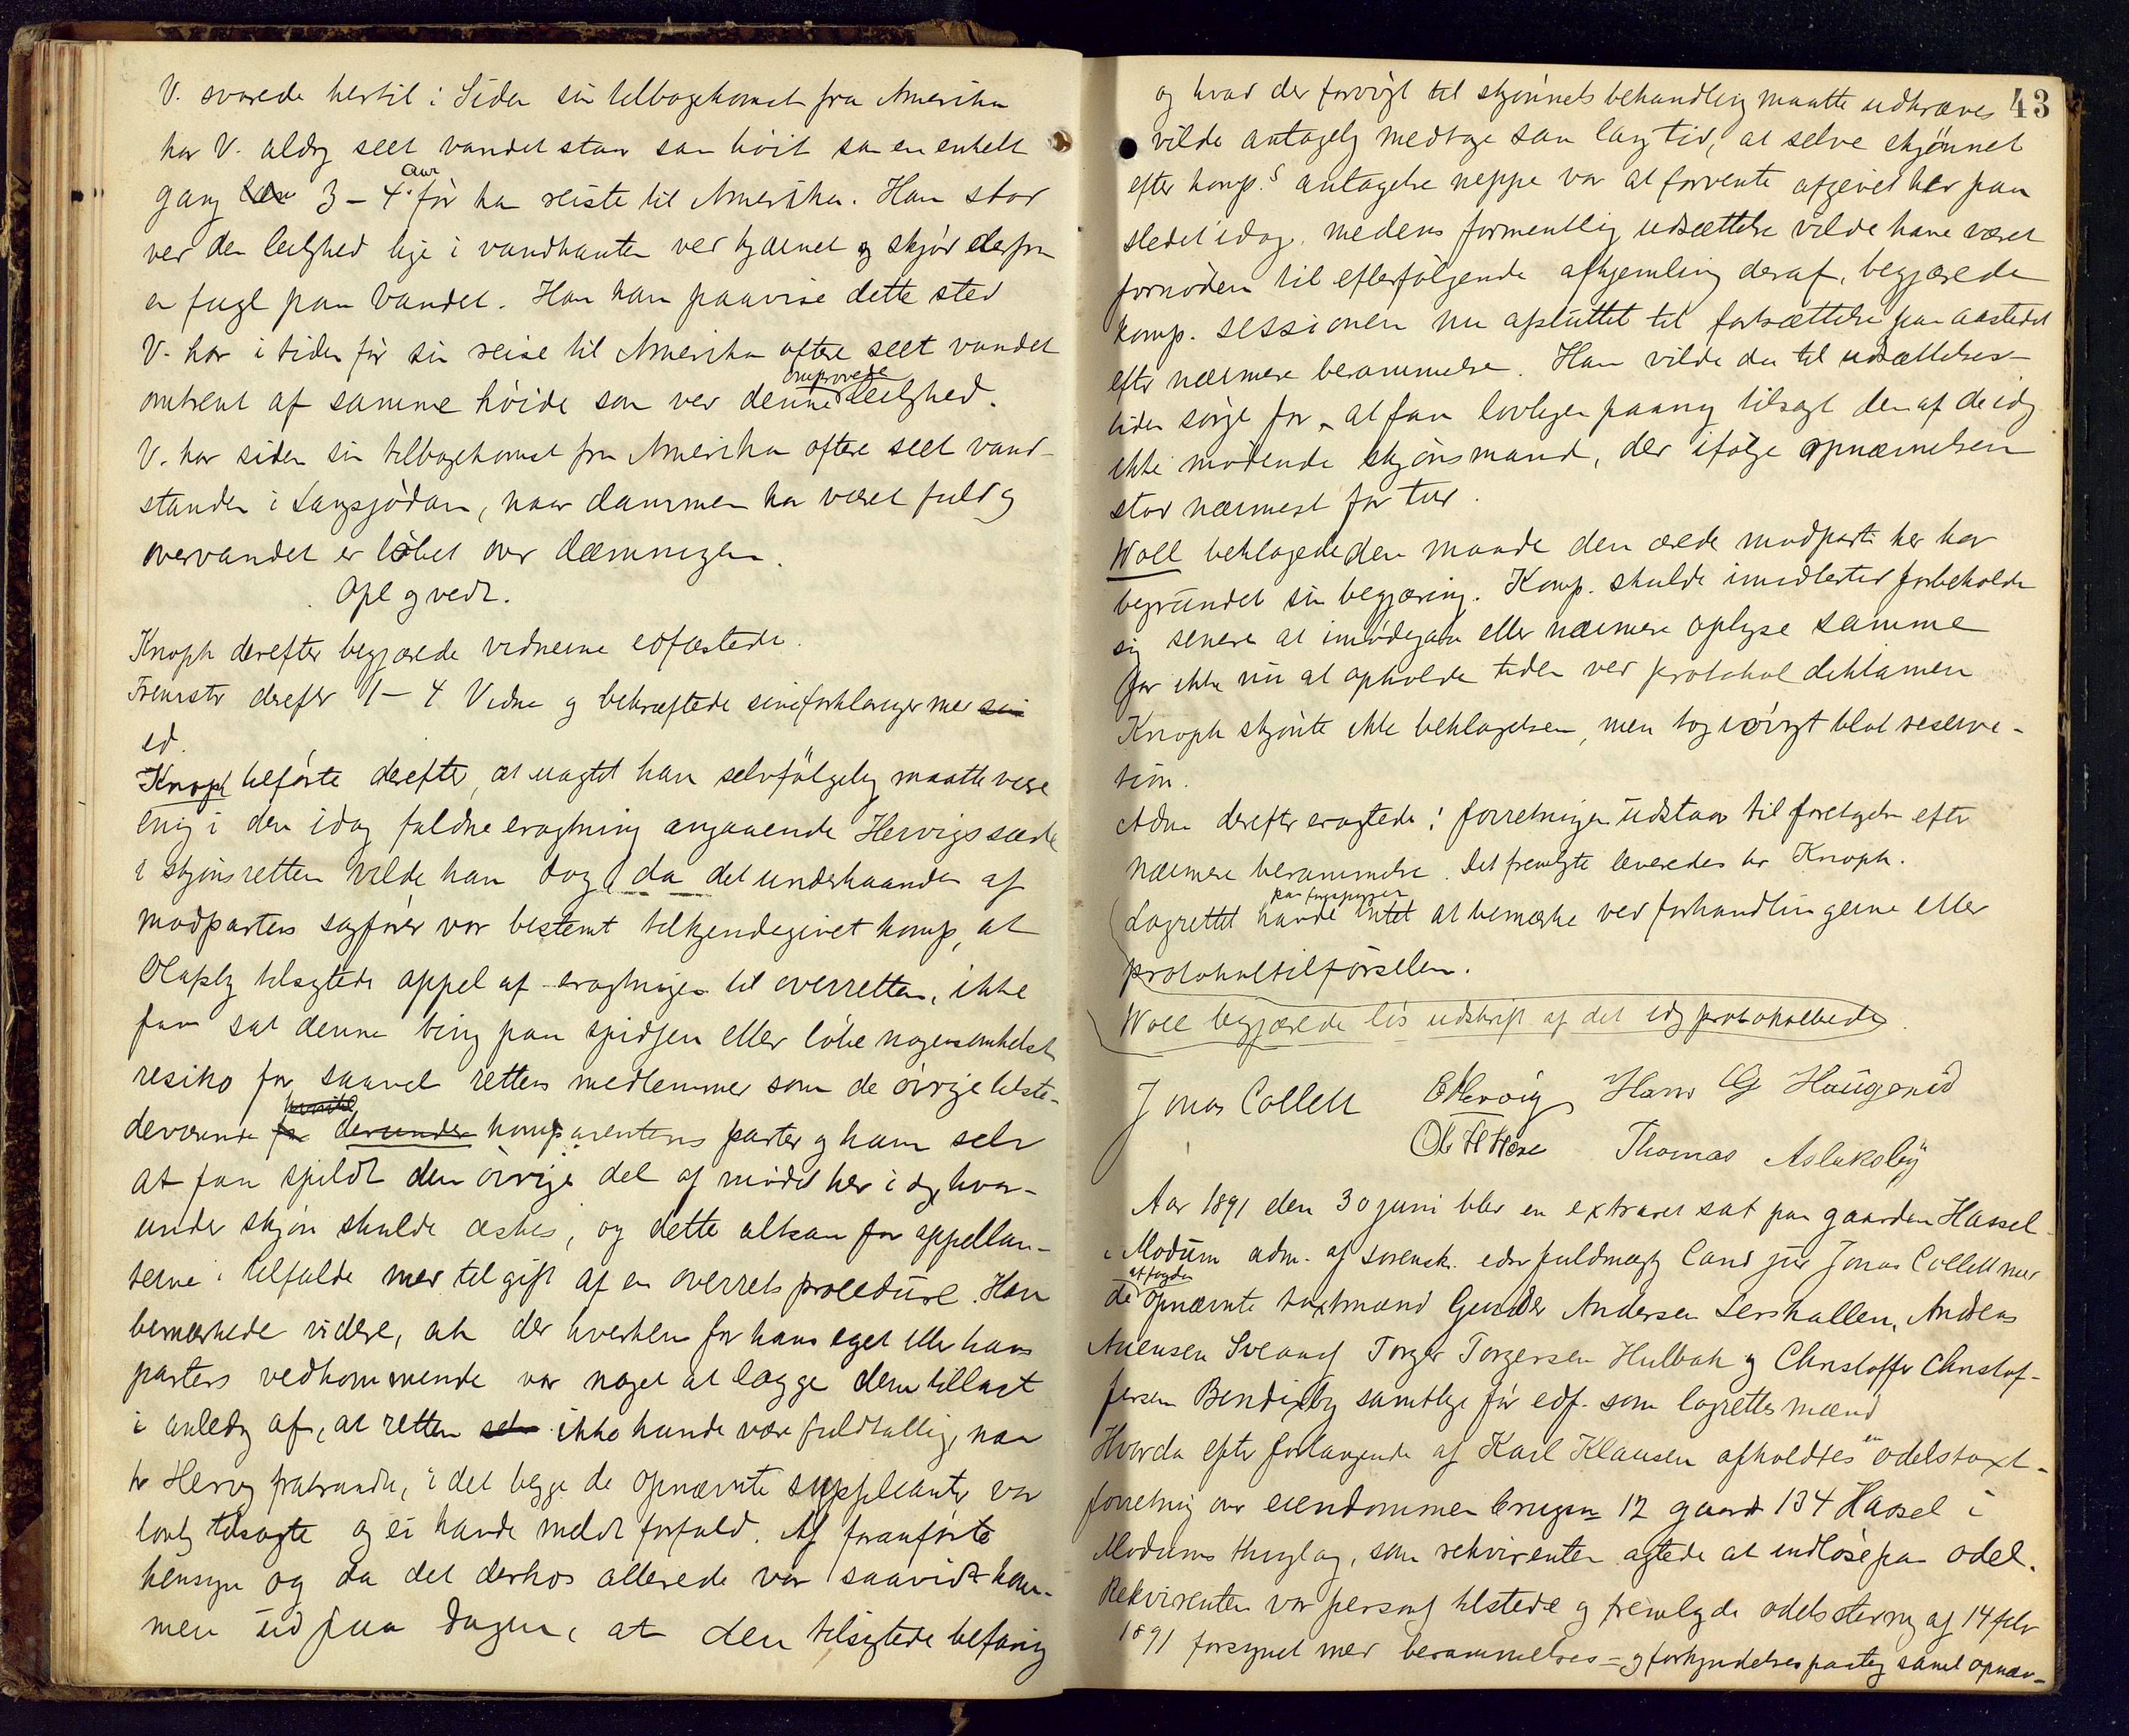 V. svarede hertil: Siden sin tilbagekomst fra Amerika
har V. aldrig seet vandet staa saa höit som en enkelt
gang 3 – 4 aar för han reiste til Amerika. Han stod
ved den leilighed lige i vandkanten ved tjærnet og skjöd derfra
en fugl paa vandet. Han kan paavise dette sted
V. har i tiden för sin reise til Amerika oftere seet vandet
omtrent af samme höide som ved denne omprovede leilighed.
V. har siden sin tilbagekomst fra Amerika oftere seet vand-
standen i Langsjödam, naar dammen har været fuld og
overvandet er löbet over dæmningen.
Opl og vedt.
Knoph derefter begjærede vidnerne edfæstede.
Fremstr derefter 1 – 4 Vidne og bekræftede sine forklaringer med
ed.
Knoph tilförte derefter, at uagtet han selvfölgelig maatte være
enig i den idag faldne eragtning angaaende Hervigs sæde
i skjönsretten vilde han dog, da det underhaanden af
modpartens sagförer var bestemt tilkjendegivet komp, at
Olafsby tilsigtede appel af eragtningen til overretten, ikke
faa sat denne ting paa spidsen eller löbe nogensomhelst
resiko for saavel rettens medlemmer som de övrige tilste-
deværende derunder komparentens parter og ham selv
at faa spildt den övrige del af mödet her i dag, hvor-
under skjön skulde æskes, og dette altsaa for appellan-
terne i tilfælde med tilgift af en overrets procedure. Han
bemærkede videre, at der hverken for hans eget eller hans
parters vedkommende var noget at lægge dem tillast
i anledg af, at retten ikke kunde være fuldtallig, naar
hr Hervig fratraadte, i det begge de opnævnte suppleanter var
lovlig tilsagte og ei havde meldt forfald. Af foranförte
hensyn og da det derhos allerede var saavidt kom-
men ud paa dagen, at den tilsigtede befaring
43
og hvad der forövrigt til skjönnets behandling maatte udkræves
vilde antagelig medtage saa lang tid, at selve skjönnet
efter komp.s antagelse neppe var at forvente afgivet her paa
stedet idag, medens formentlig udsættelse vilde have været
fornöden til efterfölgende afhjemling deraf, begjærede
komp. sessionen nu afsluttet til fortsættelse paa aastedet
efter nærmere berammelse. Han vilde da til udsættelses-
tiden sörge for at faa lovligen paany tilsagt den af de idag
ikke mödende skjönsmænd, der ifölge opnævnelsen
stod nærmest for tur.
Woll beklagede den maade den ærede modpart her har
begrundet sin begjæring. Komp. skulde imidlertid forbeholde
sig senere at imödegaa eller nærmere oplyse samme
for ikke nu at opholde tiden ved protokol diktamen
Knoph skjönte ikke beklagelsen, men tog övrigt blot reserva-
tion.
Adm derefter eragtede: forretningen udstaar til foretagelse efter
nærmere berammelse. Det fremlagte leveredes hr Knoph.
Lagrettet havde paa forespörsel intet at bemærke ved forhandlingerne eller
protokoltilförselen.
Woll begjærede lös udskrift af det idag protokollerede.
Jonas Collett E Hervig Hans G Haugerud
Thomas Aslaksby
Aar 1891 den 30 juni blev en extraret sat paa gaarden Hassel
i Modum adm. af sorensk. edsv fuldmægtg Cand jur Jonas Collett med
de af fogden opnævnte taxtmænd Gunder Andersen Lershallen, Andreas
Torger Torgersen Hulbak og Christoffer Christof-
fersen Bendixby samtlige för edf. som lagrettesmænd
Hvorda efter forlangende af Karl Klausen afholdtes en odelstaxt-
forretning over eiendommen brugsn 12 gaardn 134 Hassel i
Modums thinglag, som rekvirenten agtede at indlöse paa odel.
Rekvirenten var personl tilstede og fremlagde odelsstevng af 14 febr
1891 forsynet med berammelses- og forkyndelsespaategn samt opnæv-